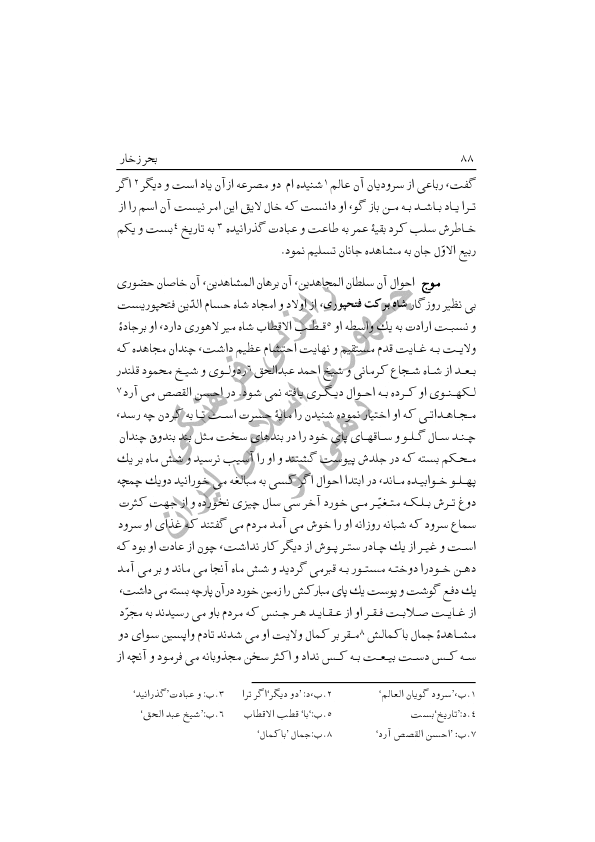 ۸۸ بحر زخار
گفت، رباعی از سرودیان آن عالم۱ شنیده ام دو مصرعه ازآن یاد است و دیگر۲ اگر
ترا یاد باشد به من باز گو، او دانست که خال لایق این امر نیست آن اسم را از
خاطرش سلب کرد بقیهٔ عمر به طاعت و عبادت گذرانیده۳ به تاریخ۴ بست و یکم
ربیع الاوّل جان به مشاهده جانان تسلیم نمود.
موج احوال آن سلطان المجاهدین، آن برهان المشاهدین، آن خاصان حضوری
بی نظیر روزگار شاه برکت فتحپوری، از اولاد و امجاد شاه حسام الدّین فتحپوریست
و نسبت ارادت به یك واسطه او۵ قطب الاقطاب شاه میر لاهوری دارد، او برجادهٔ
ولایت به غایت قدم مستقیم و نهایت احتشام عظیم داشت، چندان مجاهده که
بعد از شاه شجاع کرمانی و شیخ احمد عبدالحق۶ ردولوی و شیخ محمود قلندر
لکهنوی او کرده به احوال دیگری یافته نمی شود. در احسن القصص می آرد۷
مجاهداتی که او اختیار نموده شنیدن را مایهٔ حسرت است تا به کردن چه رسد،
چند سال گلو و ساقهای پای خود را در بندهای سخت مثل بند بندوق چندان
محکم بسته که در جلدش پیوست گشتند و او را آسیب نرسید و شش ماه بر یك
پهلو خوابیده ماند، در ابتدا احوال اگر کسی به مبالغه می خورانید دویك چمچه
دوغ ترش بلکه متغیّر می خورد آخر سی سال چیزی نخورده و از جهت کثرت
سماع سرود که شبانه روزانه او را خوش می آمد مردم می گفتند که غذای او سرود
است و غیر از یك چادر ستر پوش از دیگر کار نداشت، چون از عادت او بود که
دهن خودرا دوخته مستور به قبرمی گردید و شش ماه آنجا می ماند و بر می آمد
یك دفع گوشت و پوست یك پای مبارکش را زمین خورد درآن پارچه بسته می داشت،
از غایت صلابت فقر او از عقاید هر جنس که مردم باو می رسیدند به مجرّد
مشاهدهٔ جمال باکمالش۸ مقر بر کمال ولایت او می شدند تادم واپسین سوای دو
سه کس دست بیعت به کس نداد و اکثر سخن مجذوبانه می فرمود و آنچه از
۱.ب،'سرود گویان العالم' ۲.ب،د:'دو دیگر'اگر ترا ۳.ب: و عبادت'گذرانید'
۴.د:'تاریخ'بست ۵.ب:'با' قطب الاقطاب ۶.ب:'شیخ عبد الحق'
۷.ب: 'احسن القصص آرد' ۸.ب:جمال 'باکمال'
رایزنی فرهنگی
جمهوری اسلامی ایران
دهلی نو